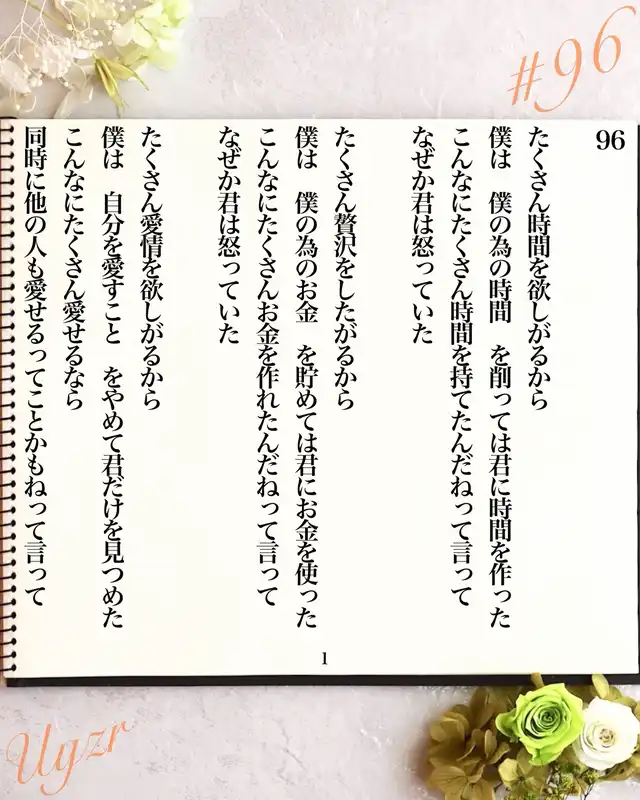 #96
96
たくさん時間を欲しがるから
僕は　僕の為の時間　を削っては君に時間を作った
こんなにたくさん時間を持てたんだねって言って
なぜか君は怒っていた
たくさん贅沢をしたがるから
僕は　僕の為のお金　を貯めては君にお金を使った
こんなにたくさんお金を作れたんだねって言って
なぜか君は怒っていた
たくさん愛情を欲しがるから
僕は　自分を愛すこと　をやめて君だけを見つめた
こんなにたくさん愛せるなら
同時に他の人も愛せるってことかもねって言って
1
Uyzr